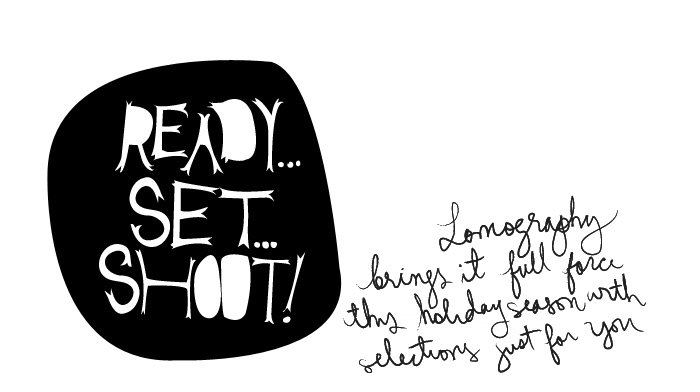 READY...
SET...
SHOOT!
Lomography
brings it full force
this holiday season with
selections just for you